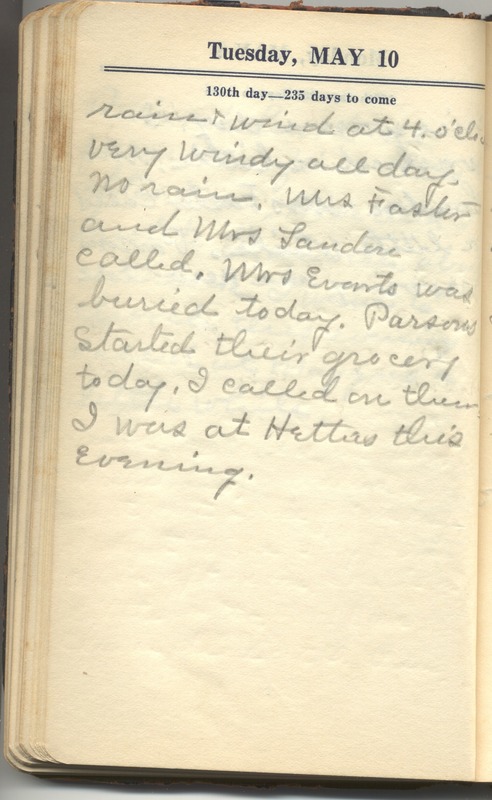 Tuesday, MAY 10
130th day—235 days to come
rain & wind at 4. o'clo
very windy all day.
No rain. Mrs Foster
and Mrs Sanders
called. Mrs Evarts was
buried today. Parsons
started their grocery
today. I called on them
I was at Hettas this
evening.